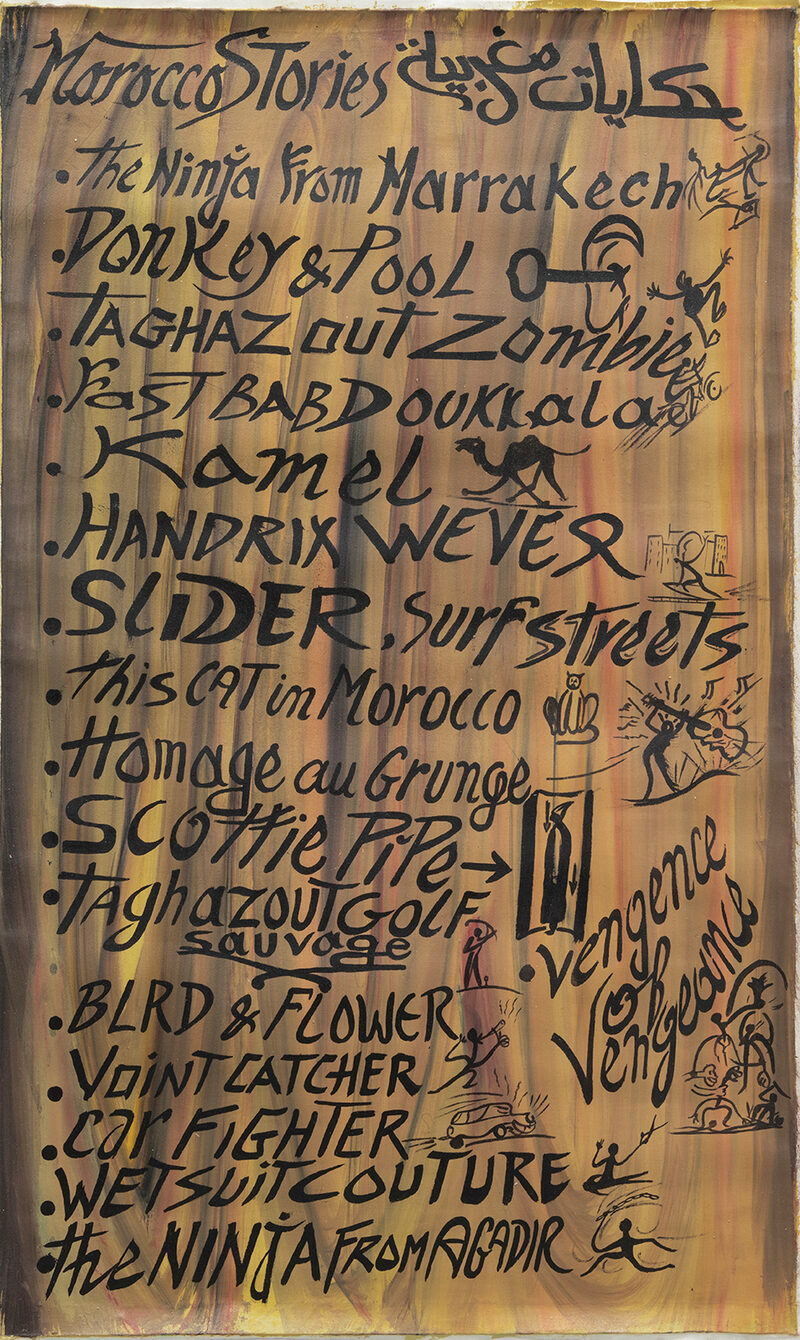 Morocco Stories حكايات مغربية
• the Ninja From Marrakech
• Donkey & Pool
• TAGHAZout Zombie
• Fast BAB Doukkala
• Kamel
• HANDRIX WEVER
• SLIDER, Surf streets
• this CAT in Morocco
• Homage au Grunge
• Scottie PiPe →
• TaghazouT GOLF
sauvage
• vengence
ob
Vengeance
• BLRD & FLOWER
• VoiNT CATCHER
• car FiGHTER
• WETSuiTCOUTURE
• the NINjA FROM AGADIR